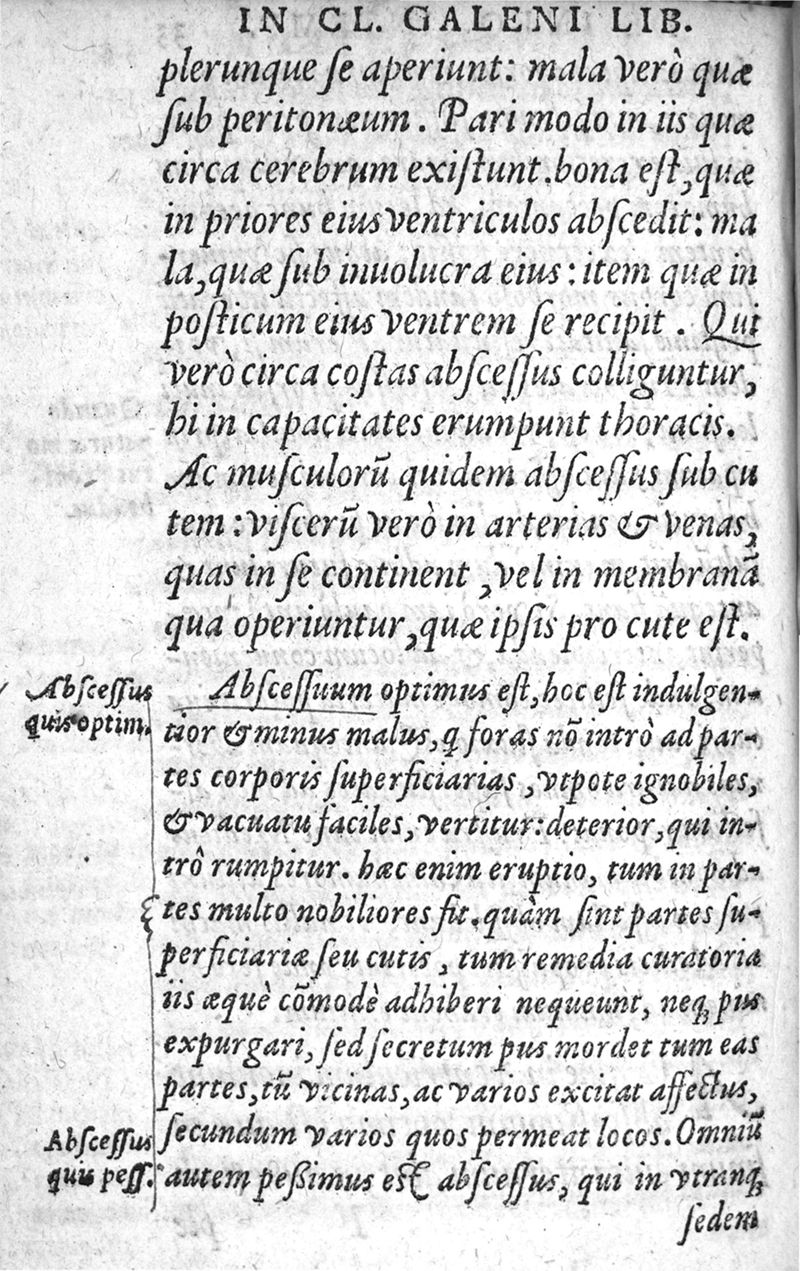 IN CL. GALENI LIB.
plerunque ſe aperiunt: mala verò quæ
ſub peritonæum. Pari modo in iis quæ
circa cerebrum exiſtunt. bona eſt, quæ
in priores eius ventriculos abſcedit: ma
la, quæ ſub inuolucra eius: item quæ in
poſticum eius ventrem ſe recipit. Qui
verò circa coſtas abſceſſus colliguntur,
hi in capacitates erumpunt thoracis.
Ac muſculorũ quidem abſceſſus ſub cu
tem: viſcerũ verò in arterias & venas,
quas in ſe continent, vel in membranã
qua operiuntur, quæ ipſis pro cute eſt.
Abſceſſus
quis optim.
Abſceſſuum optimus eſt, hoc eſt indulgen-
tior & minus malus, ꝗ foras nõ intrò ad par-
tes corporis ſuperficiarias, vtpote ignobiles,
& vacuatu faciles, vertitur: deterior, qui in-
trò rumpitur. hæc enim eruptio, tum in par-
tes multo nobiliores fit. quàm ſint partes ſu-
perficiariæ ſeu cutis, tum remedia curatoria
iis æquè cõmodè adhiberi nequeunt, neqꝫ pus
expurgari, ſed ſecretum pus mordet tum eas
partes, tũ vicinas, ac varios excitat affectus,
ſecundum varios quos permeat locos. Omniũ
Abſceſſus
quis peſſ.
autem peßimus eſt abſceſſus, qui in vtranqꝫ
ſedem